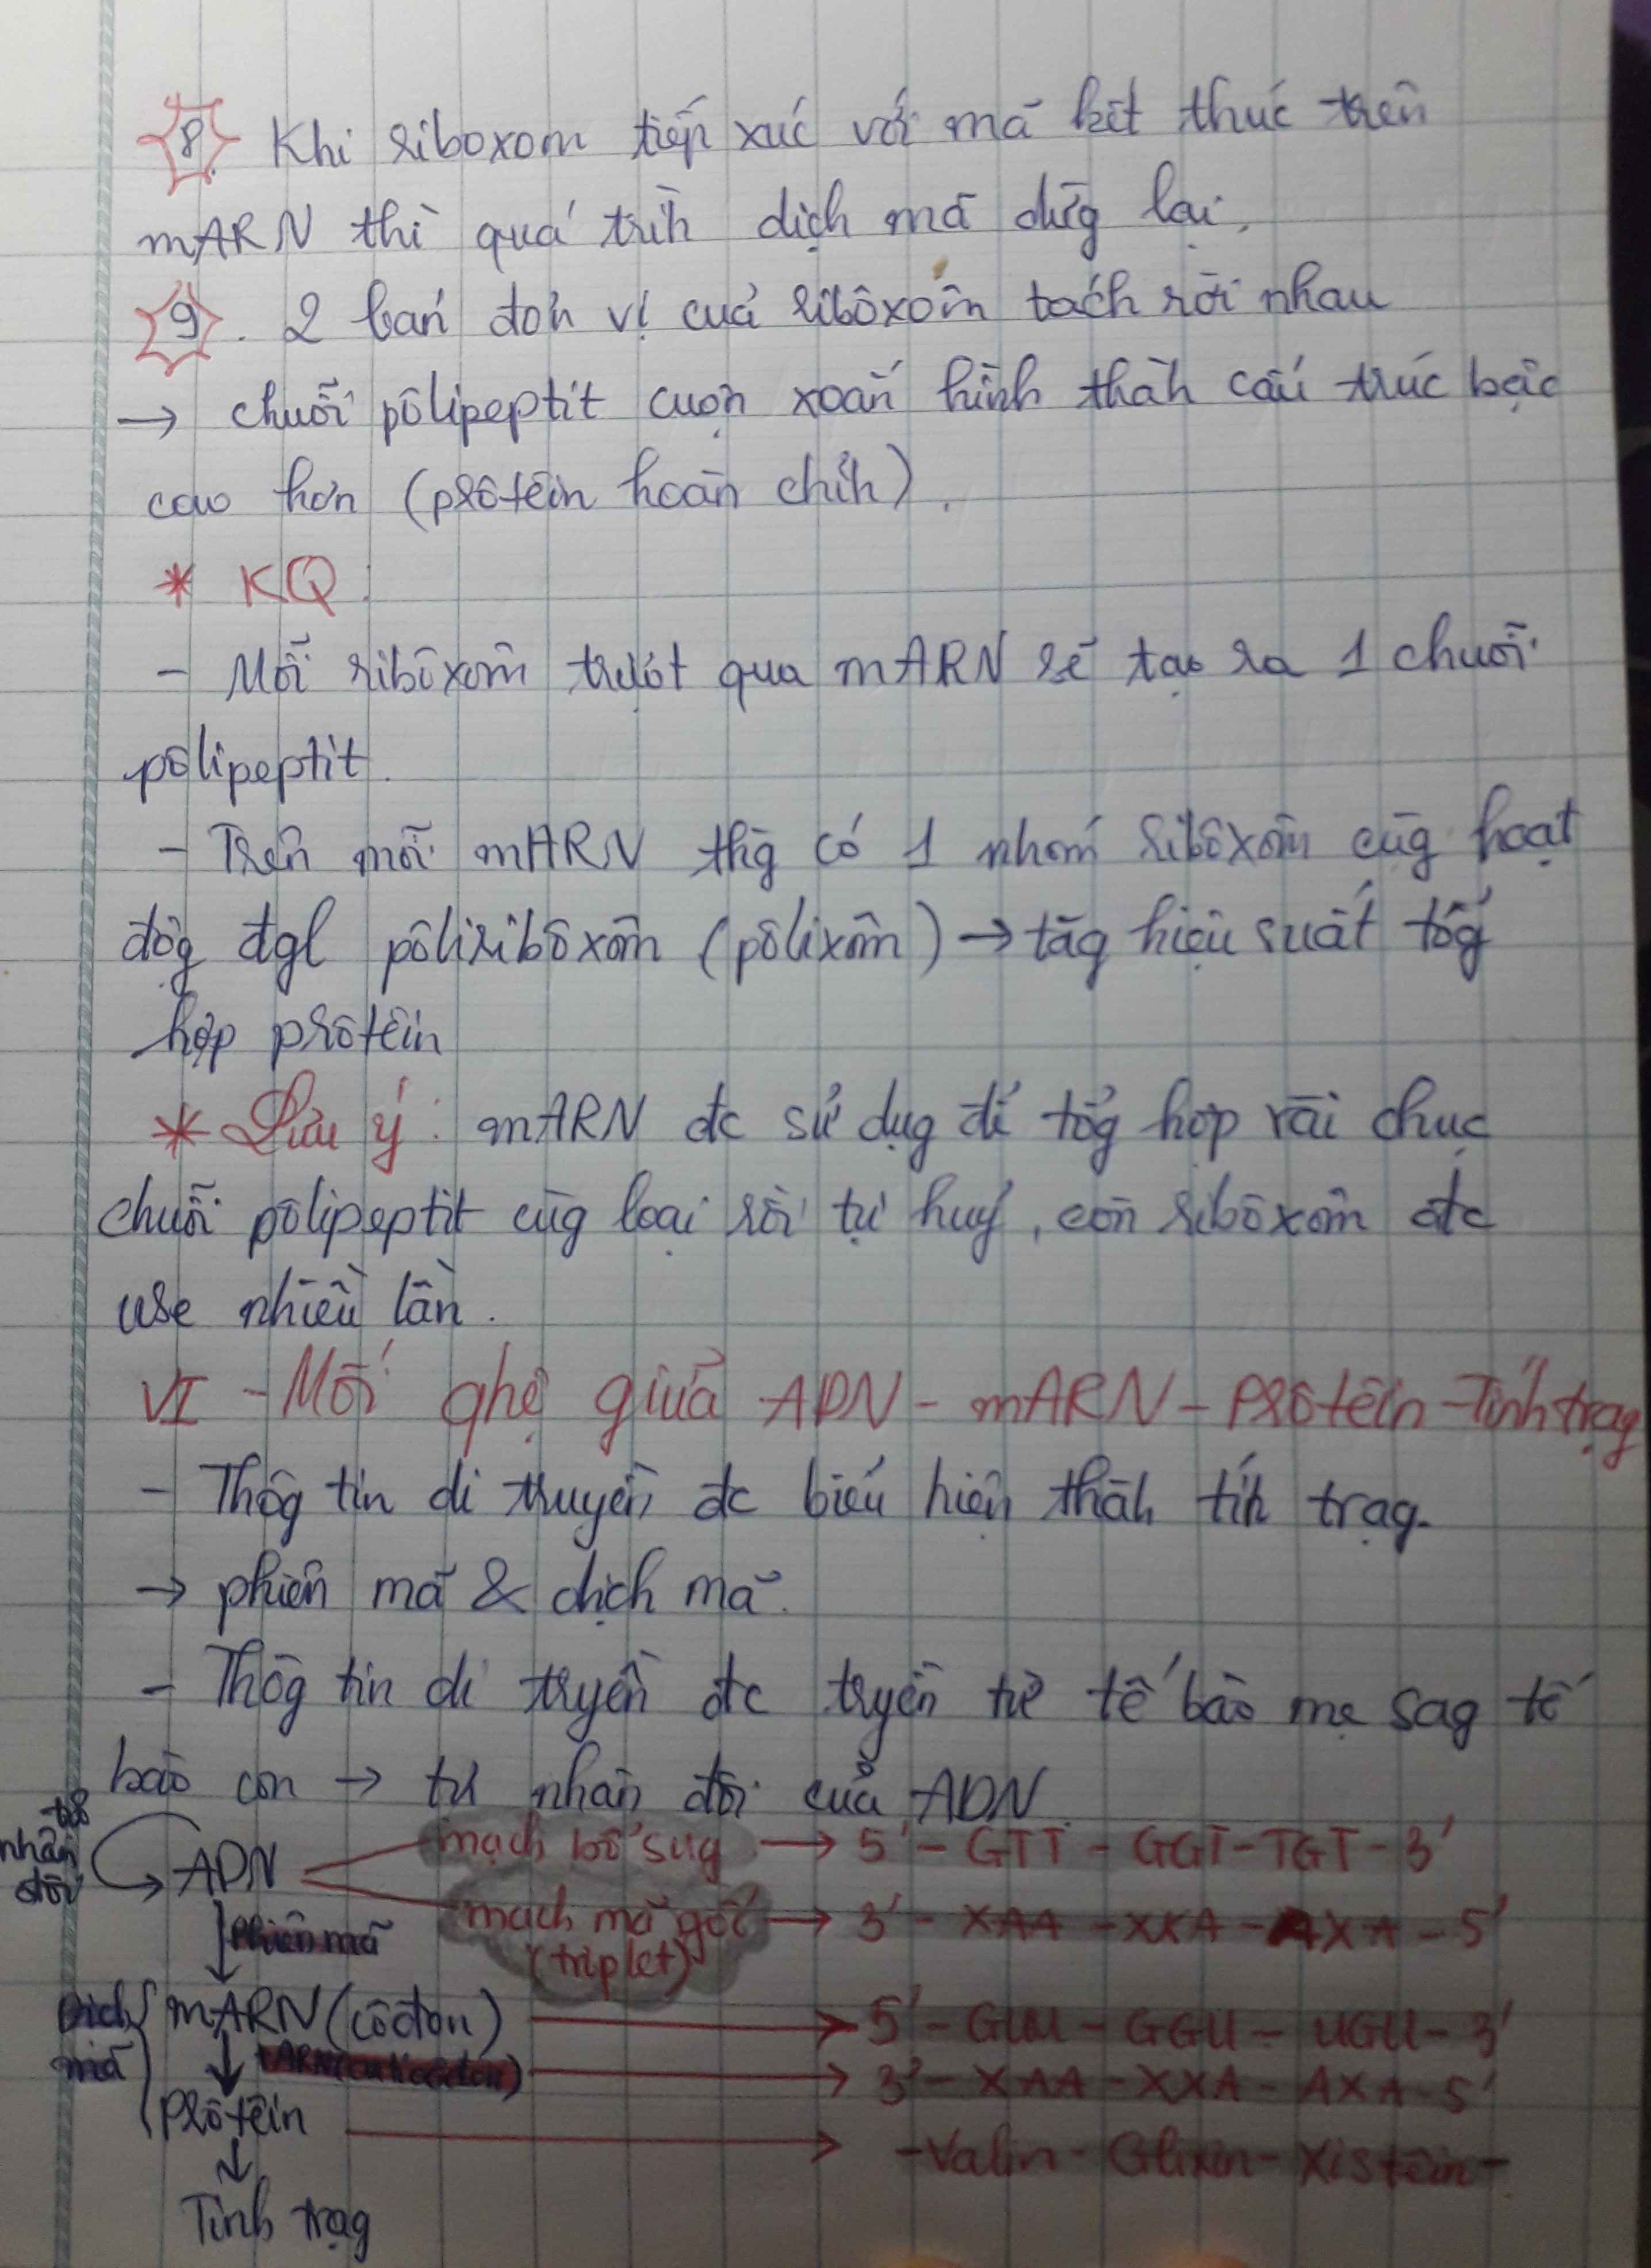 8. Khi riboxom tiếp xúc với mã kết thúc trên
mARN thì quá trìh dịch mã dừg lại.
9. 2 bán đơn vị của ribôxôm tách rời nhau
→ chuỗi pôlipeptit cuộn xoắn hình thàh cấu trúc bậc
cao hơn (prôtêin hoàn chỉh).
* KQ:
- Mỗi ribôxôm trượt qua mARN sẽ tạo ra 1 chuỗi
pôlipeptit.
- Trên mỗi mARN thg có 1 nhóm ribôxôm cùg hoạt
độg đgl pôliribôxôm (pôlixôm) → tăg hiệu suất tổg
hợp prôtêin
* Lưu ý: mARN đc sử dụg để tổg hợp vài chục
chuỗi pôlipeptit cùg loại rồi tự huỷ, còn ribôxôm đc
use nhiều lần.
VI - Mối qhệ giữa ADN - mARN - Prôtêin - Tính trạg
- Thôg tin di truyền đc biểu hiện thàh tíh trạg.
→ phiên mã & dịch mã.
- Thôg tin di tryền đc tryền từ tế bào mẹ sag tế
bào con → tự nhân đôi của ADN.
tự
nhân
đôi
ADN
mạch bổ sug → 5' - GTT - GGT - TGT - 3'
mạch mã gốc → 3' - XAA - XXA - AXA - 5'
(triplet)
Phiên mã
Dịch
mã
mARN (côđon) → 5' - GUU - GGU - UGU - 3'
tARN (anticođon) → 3' - XAA - XXA - AXA - 5'
Prôtêin → - Valin - Glixin - Xistêin -
Tính trạg